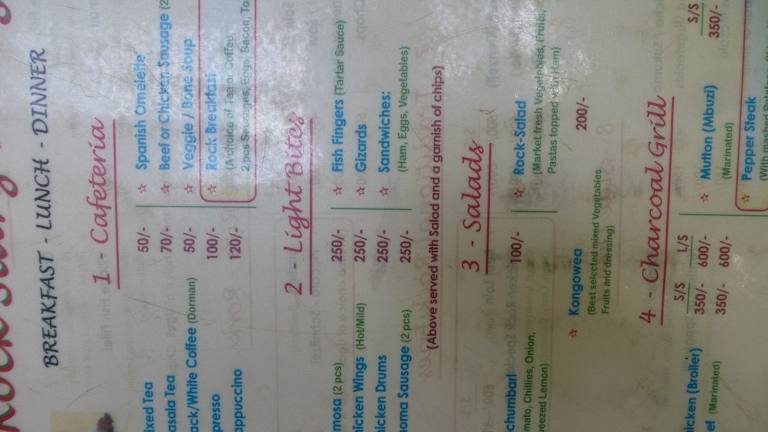 BREAKFAST - LUNCH - DINNER
1 - Cafeteria
Tea 50/-
Tea 70/-
Coffee (Dorman) 50/-
100/-
120/-
☆ Spanish Omelette
☆ Beef or Chicken Sausage (2
☆ Veggie / Bone Soup
☆ Rock Breakfast
(A choice of Tea or Coffee,
2 pcs Sausages, Eggs, Bacon, To
2 - Light Bites
(2 pcs) 250/-
Wings (Hot/Mild) 250/-
Drums 250/-
Sausage (2 pcs) 250/-
☆ Fish Fingers (Tartar Sauce)
☆ Gizards
☆ Sandwiches:
(Ham, Eggs, Vegetables)
(Above served with Salad and a garnish of chips)
3 - Salads
100/-
Chillies, Onion,
Lemon)
☆ Rock-Salad
(Market fresh Vegetables, Fruits,
Pastas topped with Ham)
☆ Kongowea 200/-
(Best selected mixed Vegetables
Fruits and dressing)
4 - Charcoal Grill
S/S L/S
(Broiler) 350/- 600/-
(Marinated) 350/- 600/-
S/S
350/-
☆ Mutton (Mbuzi)
(Marinated)
☆ Pepper Steak